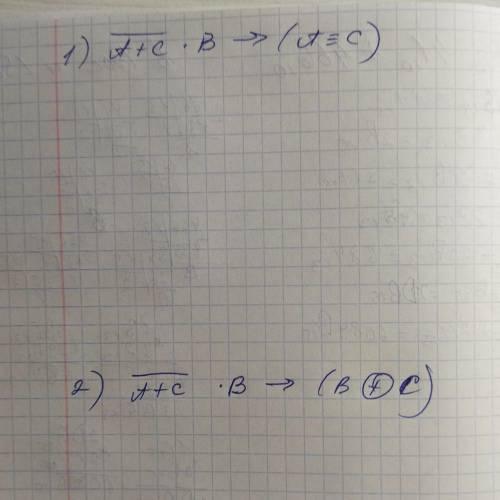 1) \overline{A+C} · B → (A ≡ C)
2) \overline{A+C} · B → (B ⊕ C)